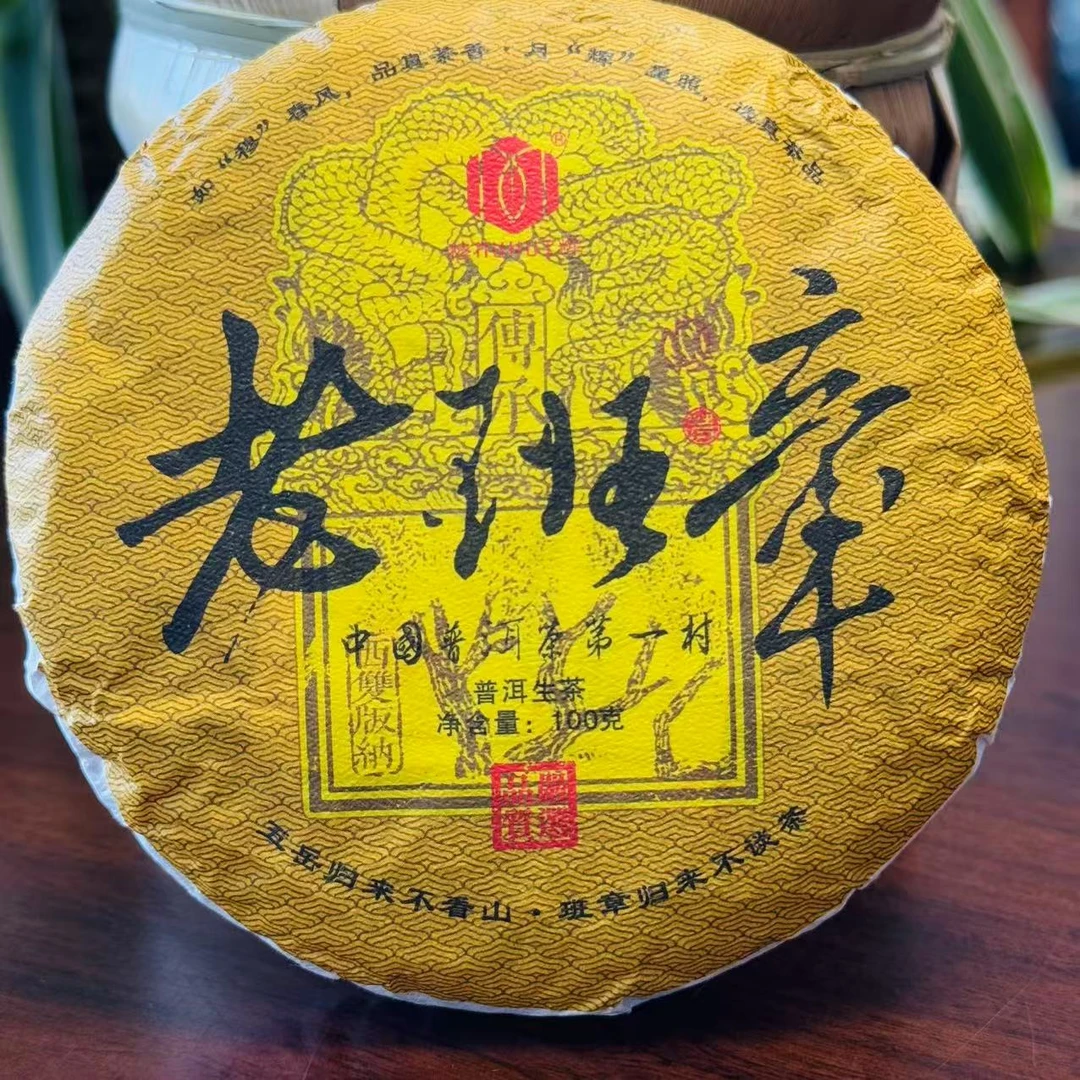 品真茶香·月“辉”晨照，造真茶品
傳承
老班章
中國普洱茶第一村
西雙版納
普洱生茶
净含量：100克
五岳归来不看山·班章归来不谈茶